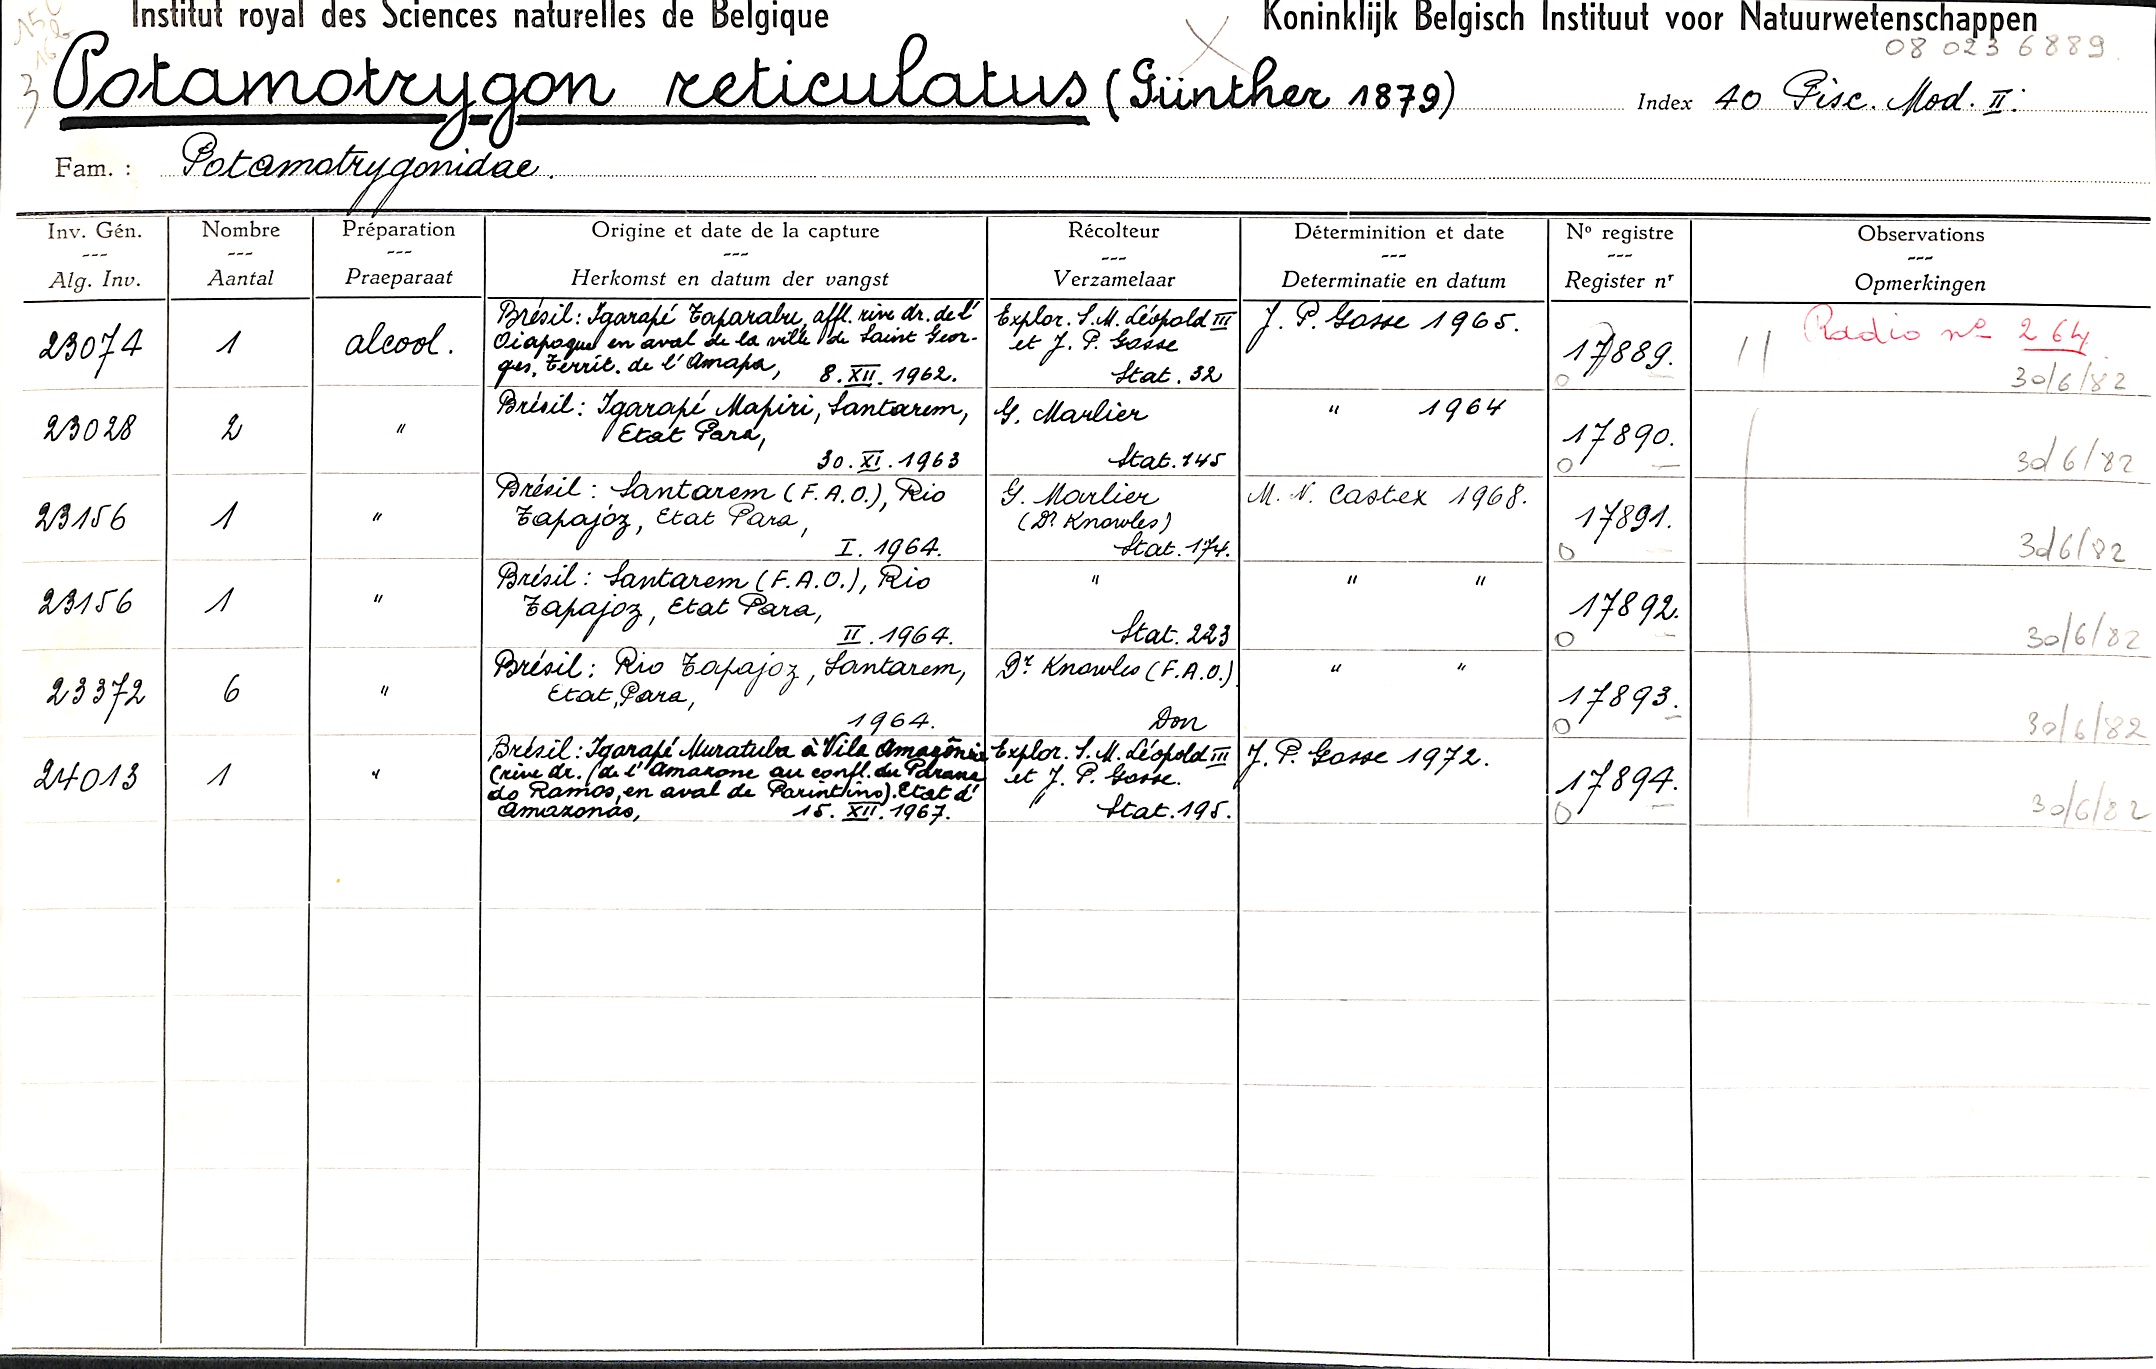 Institut royal des Sciences naturelles de Belgique
Koninklijk Belgisch Instituut voor Natuurwetenschappen
08 023 6889
Potamotrygon reticulatus (Günther 1879)
Index 40 Pisc. Mod. II.
Fam. : Potamotrygonidae.
Inv. Gén. --- Alg. Inv.
Nombre --- Aantal
Préparation --- Praeparaat
Origine et date de la capture --- Herkomst en datum der vangst
Récolteur --- Verzamelaar
Déterminition et date --- Determinatie en datum
No registre --- Register nr
Observations --- Opmerkingen
23074 1 alcool.
Brésil: Igarapé Taparabu, affl. rive dr. de l'
Oiapoque en aval de la ville de Saint Geor-
ges. Territ. de l'Amapa, 8.XII.1962.
Explor. S.M. Léopold III
et J. P. Gosse
Stat. 32
J. P. Gosse 1965.
17889.
Radio no 264
30/6/82
23028 2 "
Brésil: Igarapé Mapiri, Santarem,
Etat Para,
30.XI.1963
G. Marlier
Stat. 145
" 1964
17890.
30/6/82
23156 1 "
Brésil: Santarem (F.A.O.), Rio
Tapajoz, Etat Para,
I. 1964.
G. Marlier
(Dr Knowles)
Stat. 174.
M. N. Castex 1968.
17891.
30/6/82
23156 1 "
Brésil: Santarem (F.A.O.), Rio
Tapajoz, Etat Para,
II. 1964.
"
Stat. 223
" "
17892.
30/6/82
23372 6 "
Brésil: Rio Tapajoz, Santarem,
Etat, Para,
1964.
Dr Knowles (F.A.O.)
Don
" "
17893.
30/6/82
24013 1 "
Brésil: Igarapé Muratuba à Vila Amazônia
(rive dr. de l'Amazone au confl. du Parana
do Ramos, en aval de Parintins). Etat d'
Amazonas, 15.XII.1967.
Explor. S.M. Léopold III
et J. P. Gosse.
Stat. 195.
J. P. Gosse 1972.
17894.
30/6/82